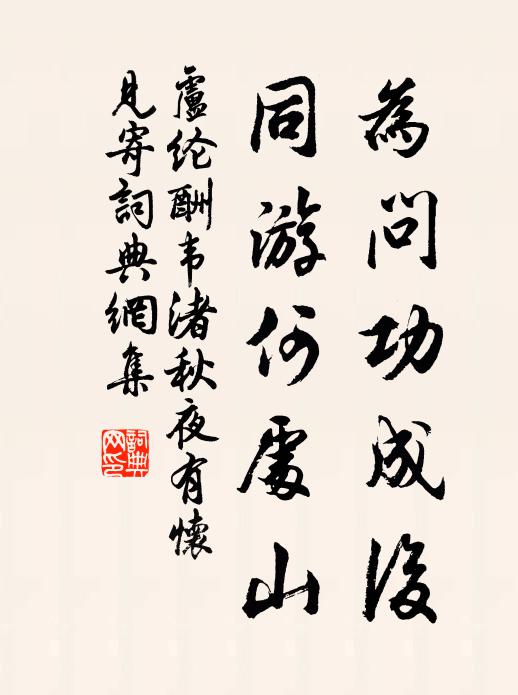 為问功成後
同游何處山
盧纶酬韦渚秋夜有懷
見寄詞典網集
詞典
网印